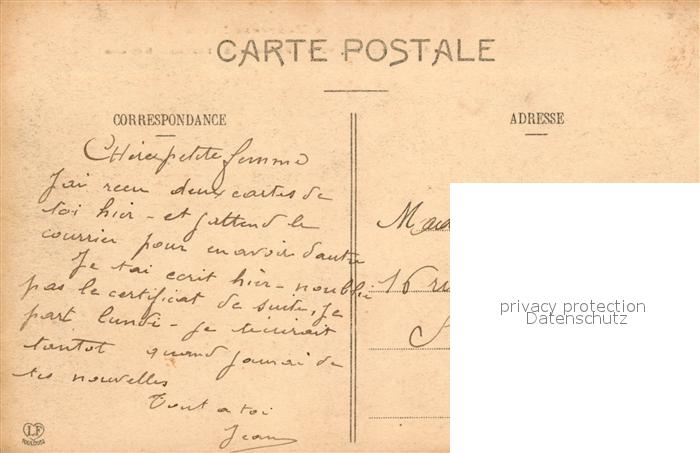 CARTE POSTALE
CORRESPONDANCE
ADRESSE
Chère petite femme
J'ai reçu deux cartes de
toi hier - et j'attend le
courrier pour en avoir d'autre
Je t'ai ecrit hier - noublie
pas le certificat de suite, je
part lundi - je
tantot quand j'aurai de
tes nouvelles
Tout a toi
Jean
16
privacy protection
Datenschutz
LF
TOULOUSE